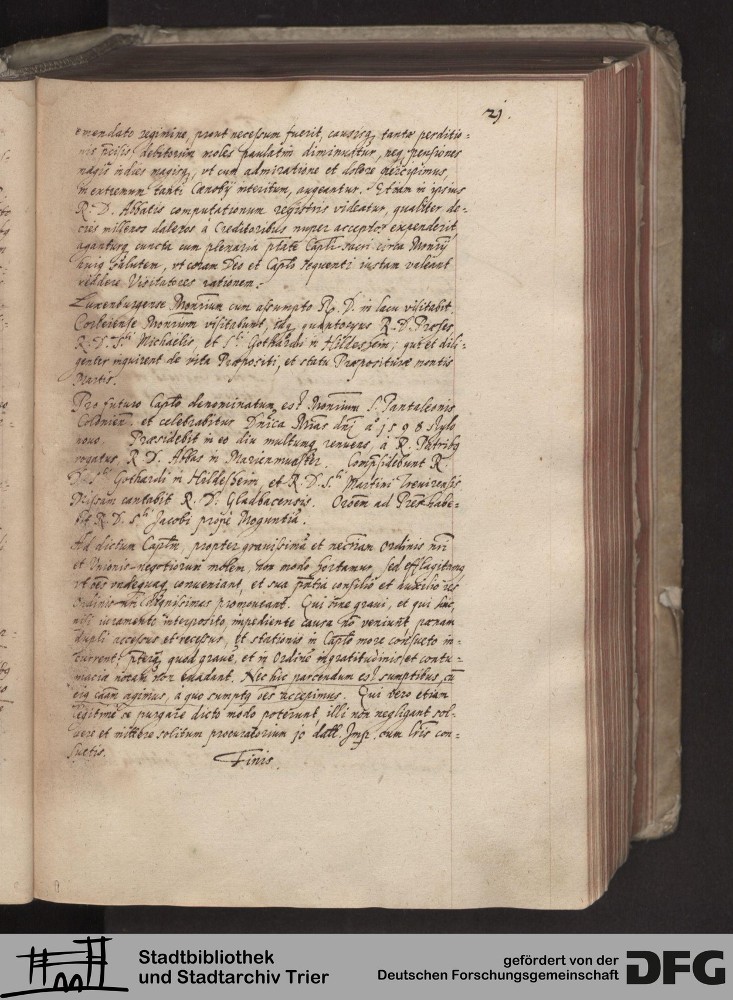 21.
emendato regimine, prout necessum fuerit, causisq, tantæ perditio=
nis debitorum moles paulatim diminuatur, neq, pensiones
magis indies magisq, vt cum admiratione et dolore percepimus,
in extremum tanti Cœnobij interitum, augeantur. Etiam in ipsius
R. D. Abbatis computationum registris videatur, qualiter de=
cies millenos daleros à Creditoribus nuper acceptos expenderit
aganturq, cuncta cum plenaria ptate Capli sacri circa Monrij
huiq salutem, vt coram Deo et Caplo sequenti iustam valeant
reddere Visitatores rationem.
Luxenburgense Monrium cum assumpto R. D. in lacu visitabit.
Corbeiense Monrium visitabunt, quantocyus R. D. Præses
R. D. S. Michaelis, et S. Gothardi in Hildessem; qui et dili=
genter inquirent de vita Præpositi, et statu Præposituræ montis
Martis.
Pro futuro Caplo denominatum est Monrium S. Pantaleonis
Colonien. et celebrabitur Dnica Mias dni à 1598 stylo
nouo. Præsidebit in eo diu multumq, renuens, à R. Patribq
rogatus, R. D. Abbas in Marienmunster. Compsidebunt R.
D. S. Gothardi in Hildesheim, et R. D. S. Martini Treuirensis
Missam cantabit R. D. Gladbacensis. Oroem ad Pres habe=
bit R. D. S. Jacobi propè Moguntiã.
Ad dictum Caplm, propter grauissimã et necriam Ordinis nri
et Vnionis negotiorum molem, non modo hortamur, sed efflagitamq
vt oes vndequaq, conueniant, et sua pntia consilio et auxilio res
Ordinis nri dignissimas promoueant. Qui sine graui, et qui hic,
nisi iuramento interposito, impediente causa no veniunt pœnam
dupli accessus et recessus, et stationis in Caplo more consueto in=
current, pterq, quod graue, et in Ordine ingratitudinis et contu=
maciæ notam non euadant. Nec hic parcendum est sumptibus, cu
eiq caam agimus, à quo sumptq oes accepimus. Qui vero etiam
legitimè se purgare dicto modo poterunt, illi non negligant sol=
uere et mittere solitum procuratorium 10 dall. Imp. cum lris con=
suetis.
Finis.
Stadtbibliothek
und Stadtarchiv Trier
gefördert von der
Deutschen Forschungsgemeinschaft
DFG